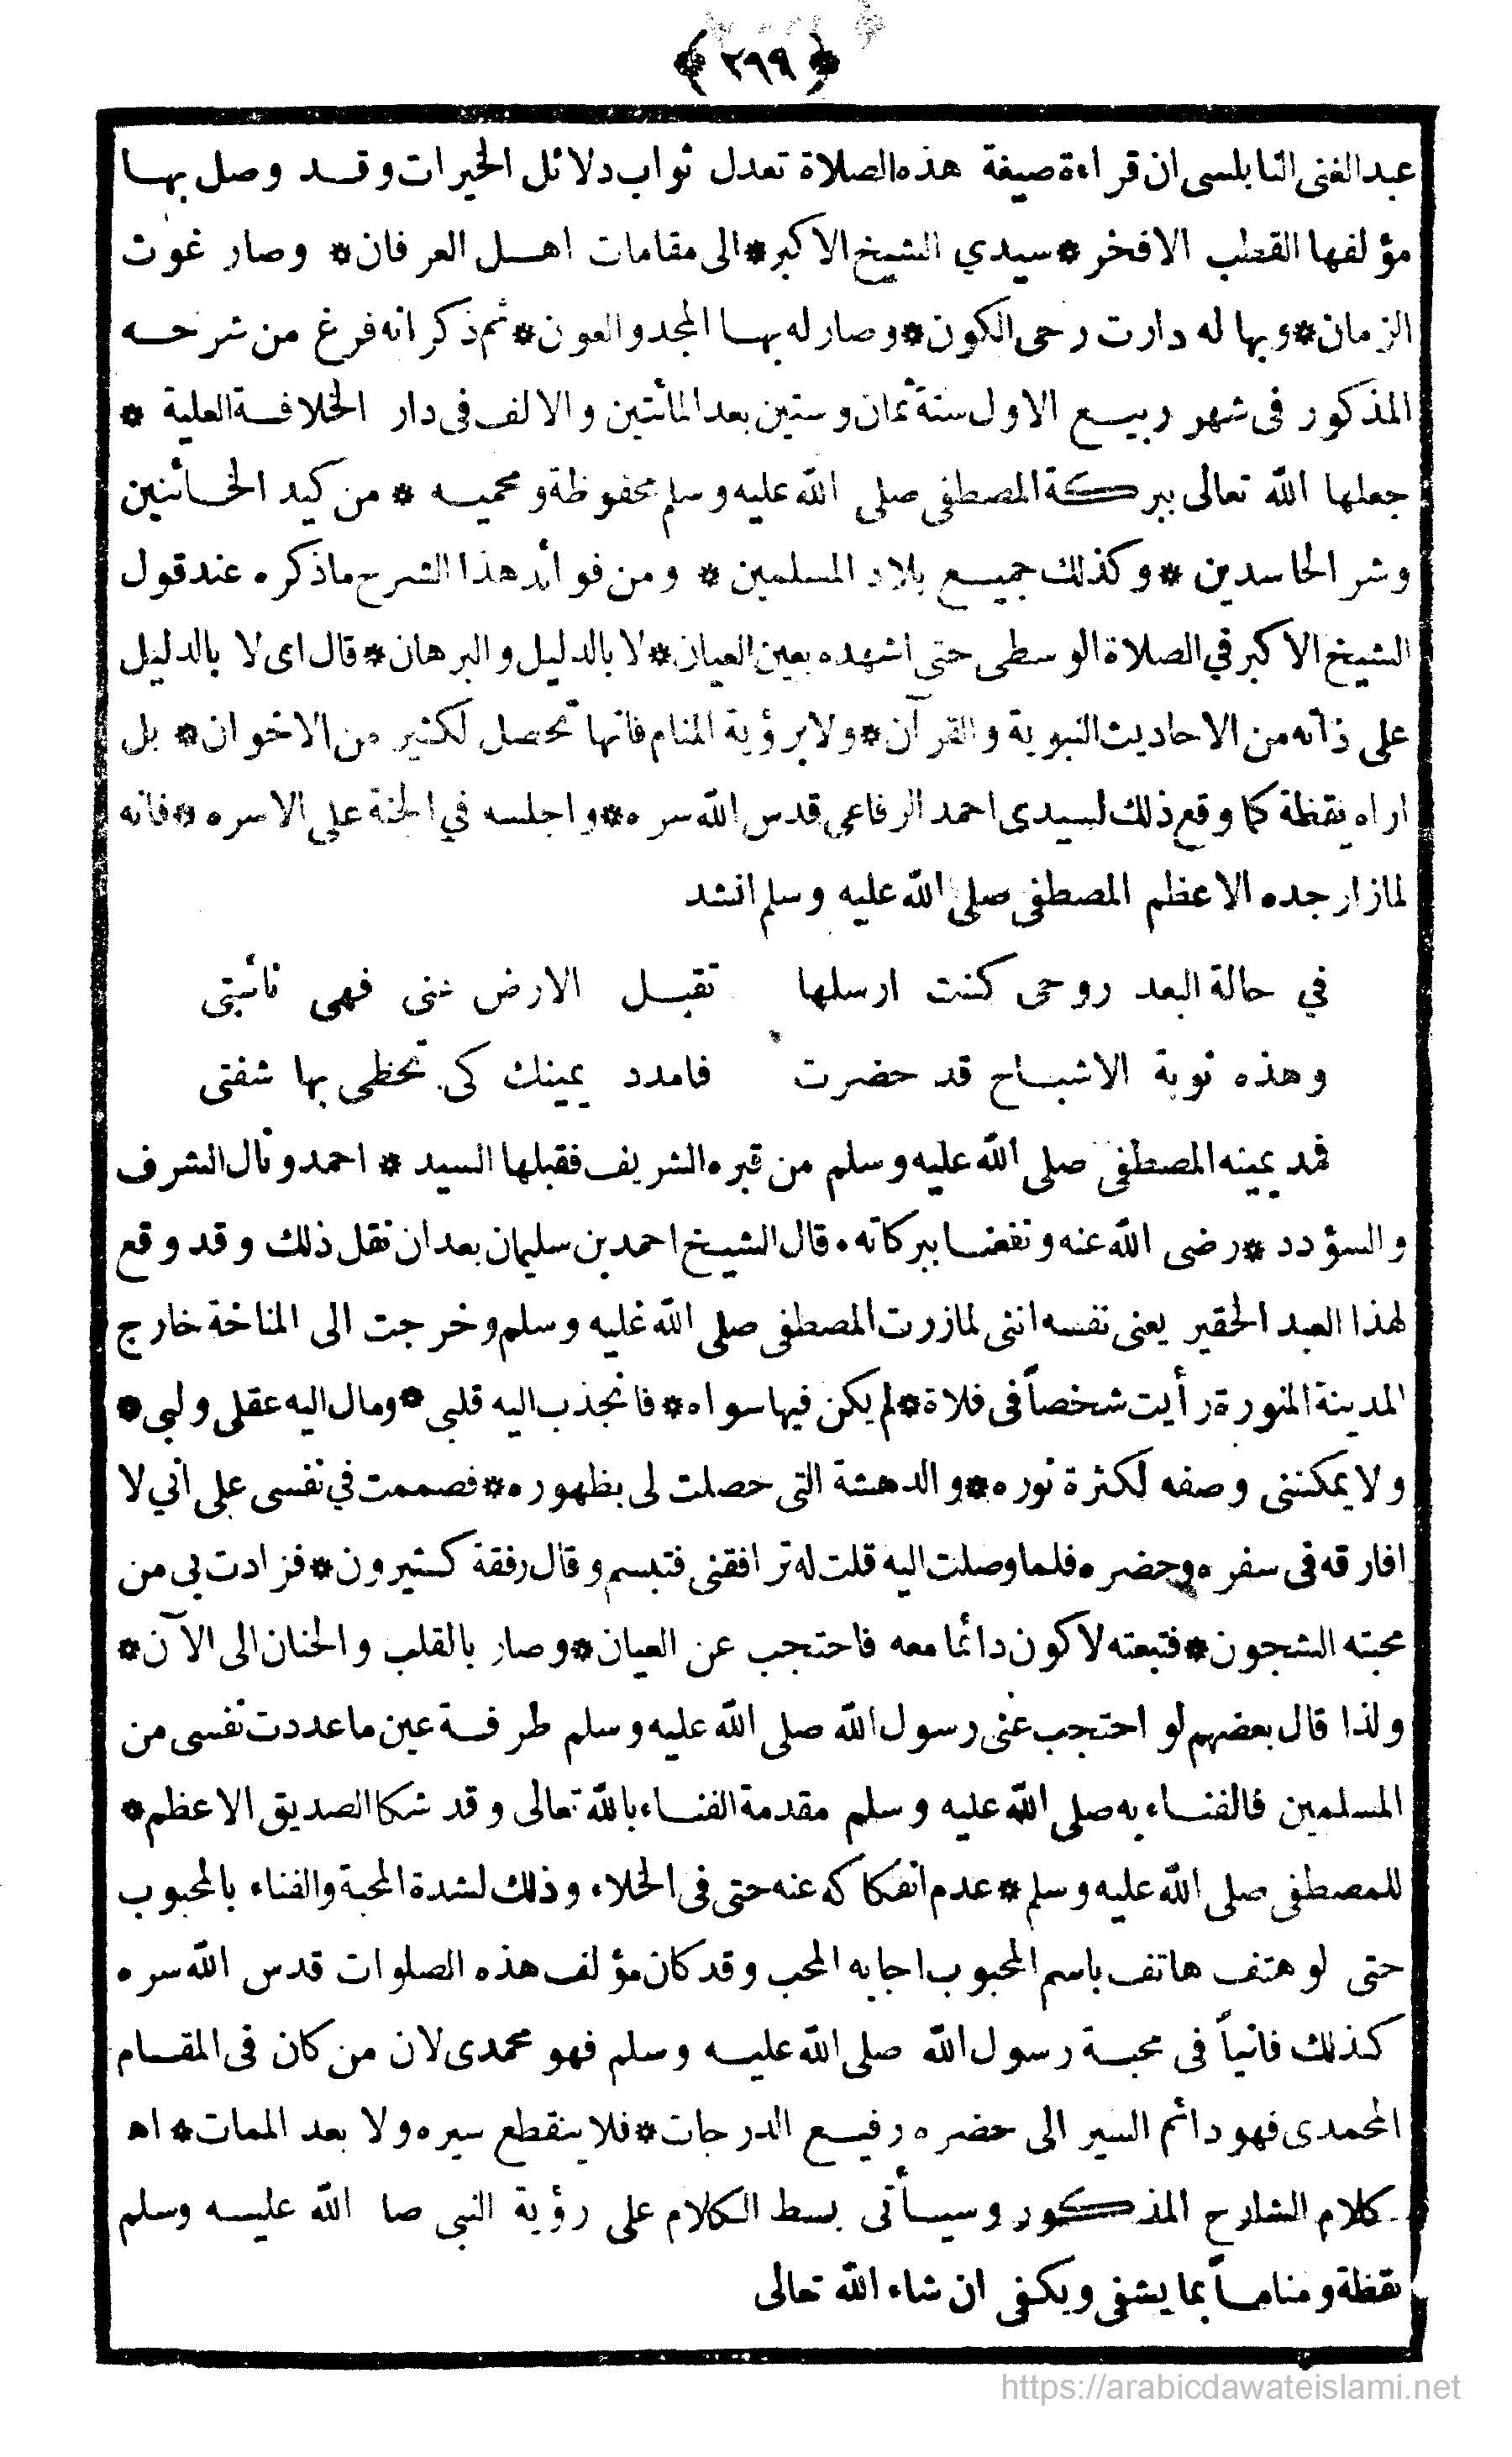 ﴿ ٢٩٩ ﴾
عبد الغنى النابلسى ان قراءة صيغة هذه الصلاة تعدل ثواب دلائل الخيرات وقد وصل بها
مؤلفها القطب الافخر * سيدي الشيخ الاكبر * الى مقامات اهل العرفان * وصار غوث
الزمان * وبها له دارت رحى الكون * وصار له بها المجد والعون * ثم ذكر انه فرغ من شرحه
المذكور فى شهر ربيع الاول سنة ثمان وستين بعد المائتين والالف فى دار الخلافة العلية *
جعلها الله تعالى ببركة المصطفى صلى الله عليه وسلم محفوظة ومحميه * من كيد الخائنين
وشر الحاسدين * وكذلك جميع بلاد المسلمين * ومن فوائد هذا الشرح ماذكره عند قول
الشيخ الاكبر في الصلاة الوسطى حتى اشهده بعين العيان * لا بالدليل والبرهان * قال اى لا بالدليل
على ذاته من الاحاديث النبوية والقرآن * ولا برؤية المنام فانها تحصل لكثير من الاخوان * بل
اراه يقظة كما وقع ذلك لسيدى احمد الرفاعى قدس الله سره * واجلسه في الجنة على الاسره * فانه
لما زار جده الاعظم المصطفى صلى الله عليه وسلم انشد
في حالة البعد روحى كنت ارسلها تقبل الارض عنى فهى نائبتى
وهذه نوبة الاشباح قد حضرت فامدد يمينك كى تحظى بها شفتى
فمد يمينه المصطفى صلى الله عليه وسلم من قبره الشريف فقبلها السيد * احمد ونال الشرف
والسؤدد * رضى الله عنه ونفعنا ببركاته . قال الشيخ احمد بن سليمان بعد ان نقل ذلك وقد وقع
لهذا العبد الحقير يعنى نفسه اننى لما زرت المصطفى صلى الله عليه وسلم وخرجت الى المناخة خارج
المدينة المنورة رأيت شخصاً فى فلاة * لم يكن فيها سواه * فانجذب اليه قلبى * ومال اليه عقلى ولبى *
ولا يمكننى وصفه لكثرة نوره * والدهشة التى حصلت لى بظهوره * فصممت في نفسى على اني لا
افارقه فى سفره وحضره فلما وصلت اليه قلت له ترافقنى فتبسم وقال رفقة كثيرون * فزادت بى من
محبته الشجون * فتبعته لاكون دائما معه فاحتجب عن العيان * وصار بالقلب والجنان الى الآن *
ولذا قال بعضهم لو احتجب عنى رسول الله صلى الله عليه وسلم طرفة عين ماعددت نفسى من
المسلمين فالفناء به صلى الله عليه وسلم مقدمة الفناء بالله تعالى وقد شكا الصديق الاعظم *
للمصطفى صلى الله عليه وسلم * عدم انفكاكه عنه حتى فى الخلاء وذلك لشدة المحبة والفناء بالمحبوب
حتى لو هتف هاتف باسم المحبوب اجابه المحب وقد كان مؤلف هذه الصلوات قدس الله سره
كذلك فانياً فى محبة رسول الله صلى الله عليه وسلم فهو محمدى لان من كان فى المقام
المحمدى فهو دائم السير الى حضره رفيع الدرجات * فلا ينقطع سيره ولا بعد الممات * اه
كلام الشارح المذكور وسيأتى بسط الكلام على رؤية النبى الله عليه وسلم
يقظة ومناماً بما يشفى ويكفى ان شاء الله تعالى
https://arabicdawateislami.net